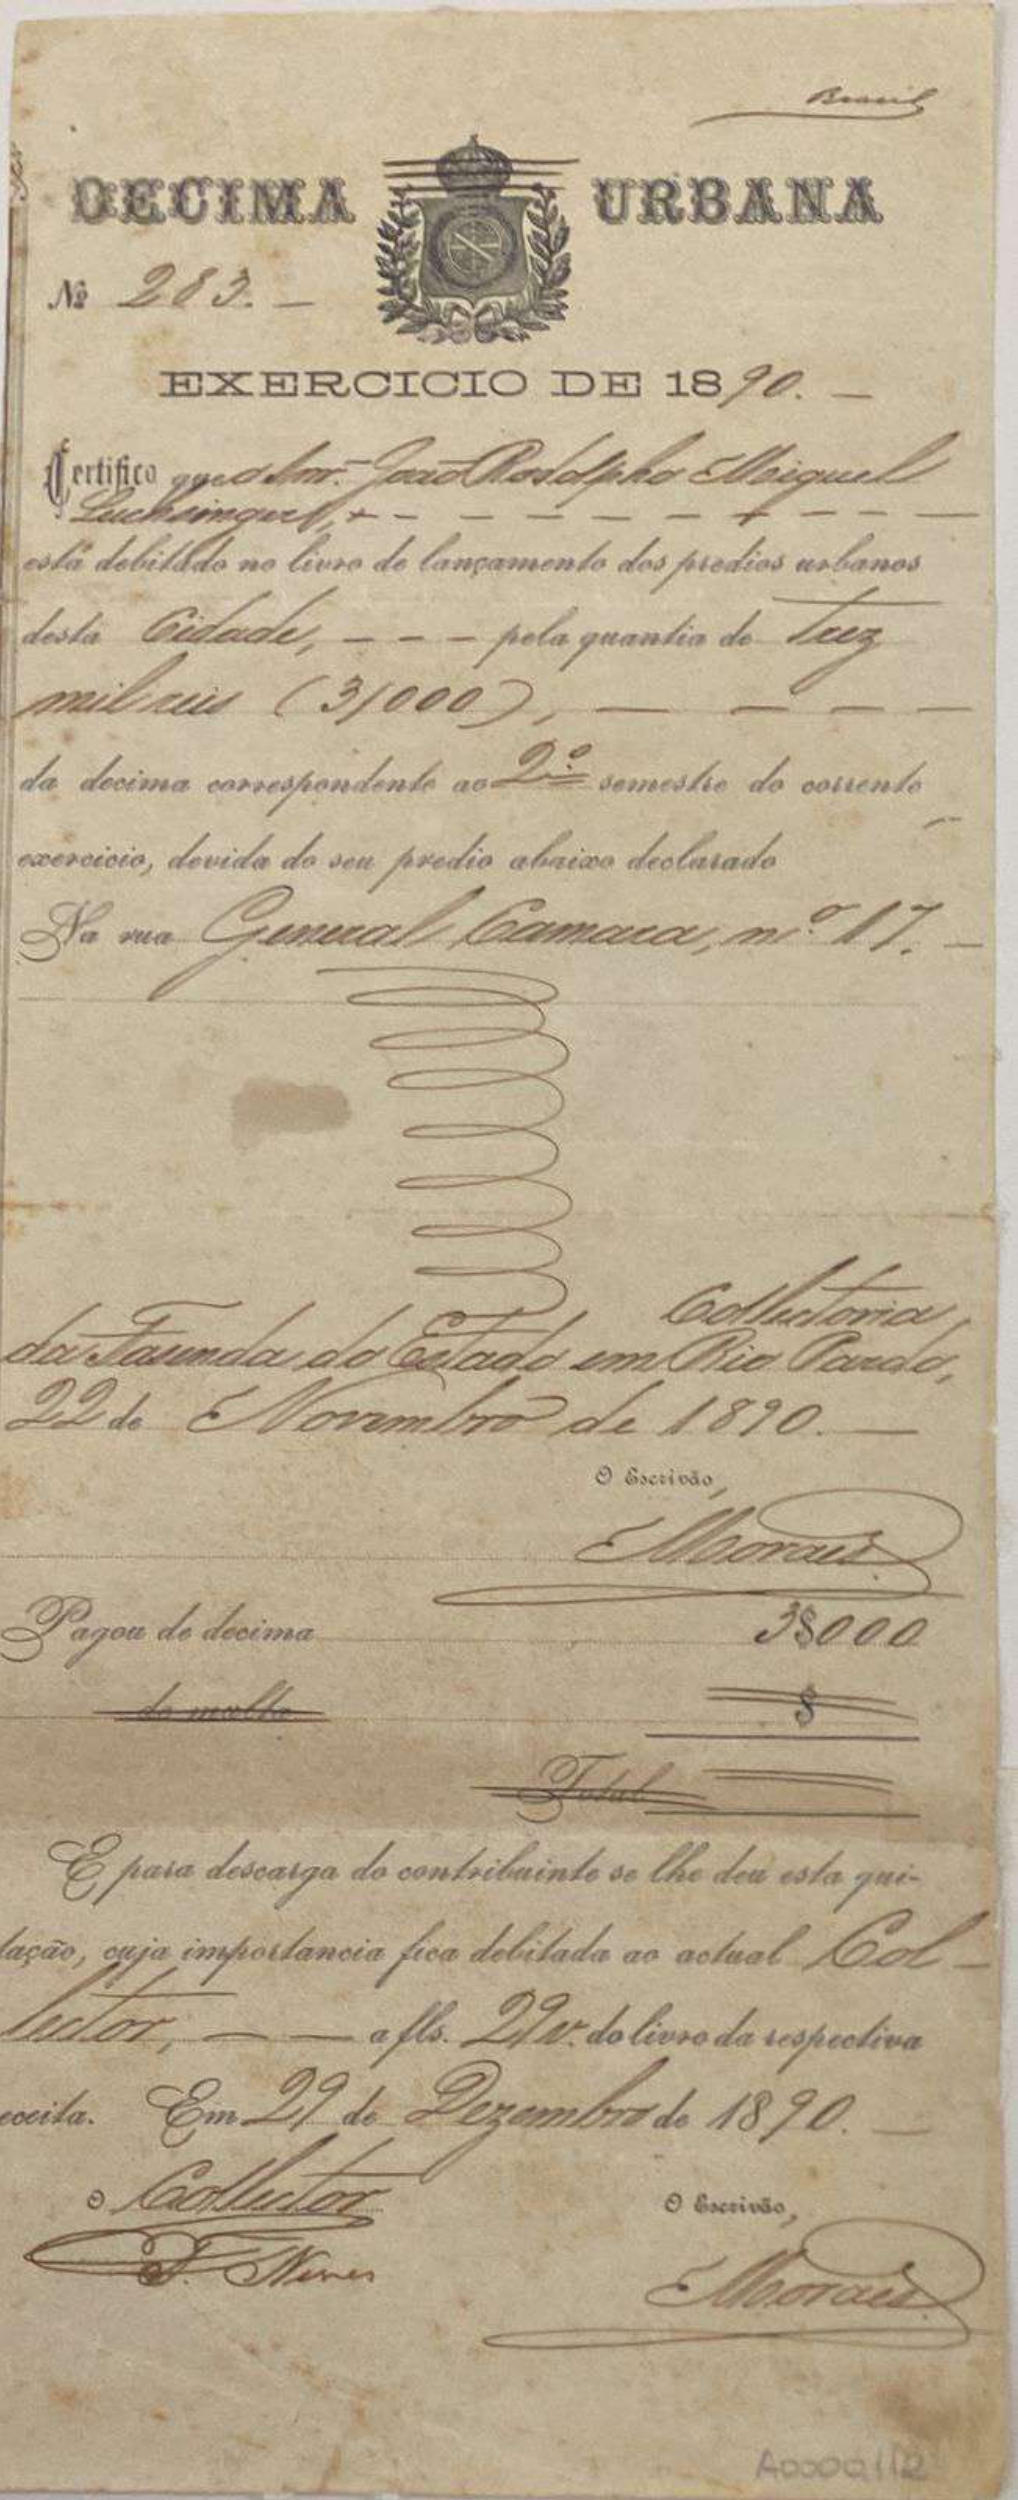 Brasil
DECIMA URBANA
Nº 283. -
EXERCICIO DE 1890. -
Certifico que o Snr. João Rodolpho Miguel
Luchsinger, - - - - - - - -
está debitado no livro de lançamento dos predios urbanos
desta Cidade, - - - pela quantia de Trez
mil reis (3/000), - - - -
da decima correspondente ao 2º semestre do corrente
exercicio, devida do seu predio abaixo declarado
Na rua General Camara, nº 17. -
Collectoria
da Fasenda do Estado em Rio Pardo,
22 de Novembro de 1890. -
O Escrivão,
Moraes
Pagou de decima 3$000
de multa $
Total
E para descarga do contribuinte se lhe deu esta qui-
tação, cuja importancia fica debitada ao actual Col-
lector, - - a fls. 29v. do livro da respectiva
receita. Em 29 de Dezembro de 1890. -
O Collector O Escrivão,
F. Neves Moraes
A0000112